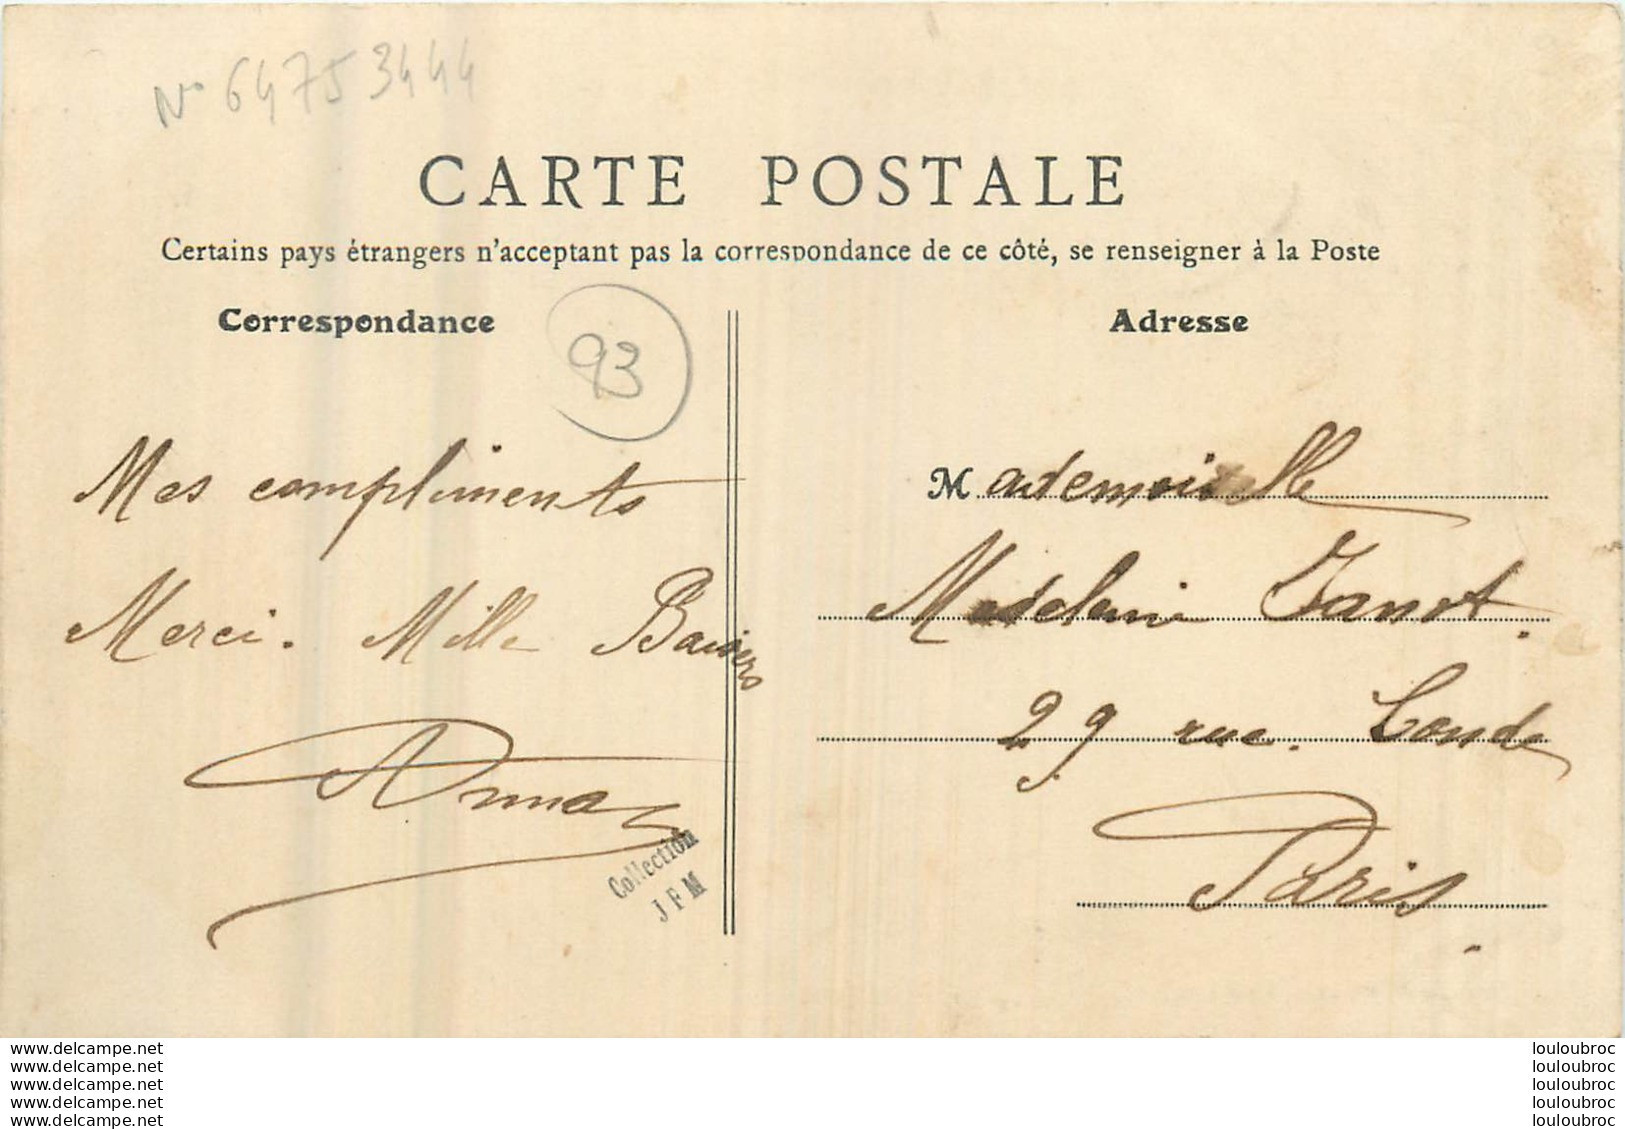 N° 64753444
CARTE POSTALE
Certains pays étrangers n'acceptant pas la correspondance de ce côté, se renseigner à la Poste
Correspondance
93
Mes compliments
Merci. Mille Baisers
Anna
Collection
J F M
Adresse
Mademoiselle
Madeleine Janot.
29 rue. Condé
Paris.
www.delcampe.net
www.delcampe.net
www.delcampe.net
www.delcampe.net
www.delcampe.net
louloubroc
louloubroc
louloubroc
louloubroc
louloubroc